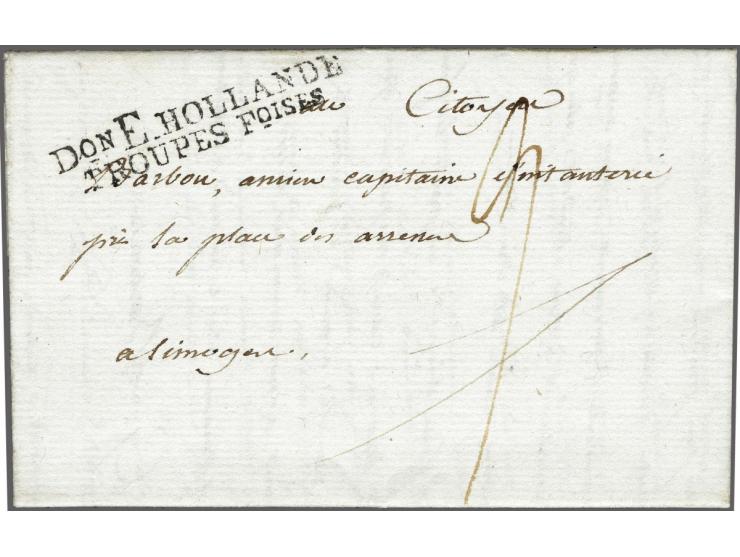 DON E. HOLLANDE
TROUPES FOISES
au Citoyen
Barbou, ancien capitaine d'infanterie
près la place des arrenes
a limoges.